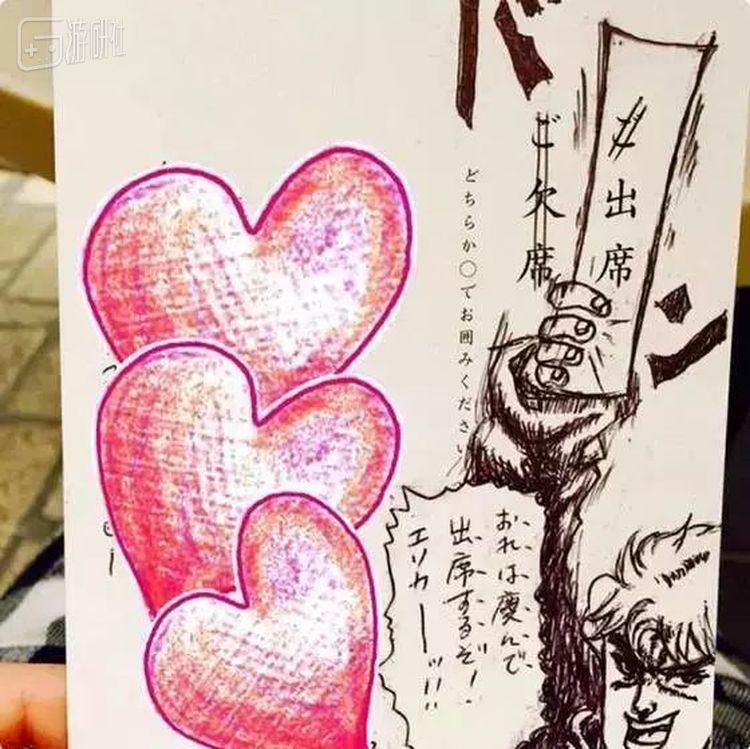 游研社
ご出席
ご欠席
どちらか〇でお囲みください
ン
おれは慶んで
出席するぞ!
エリカーッ!!